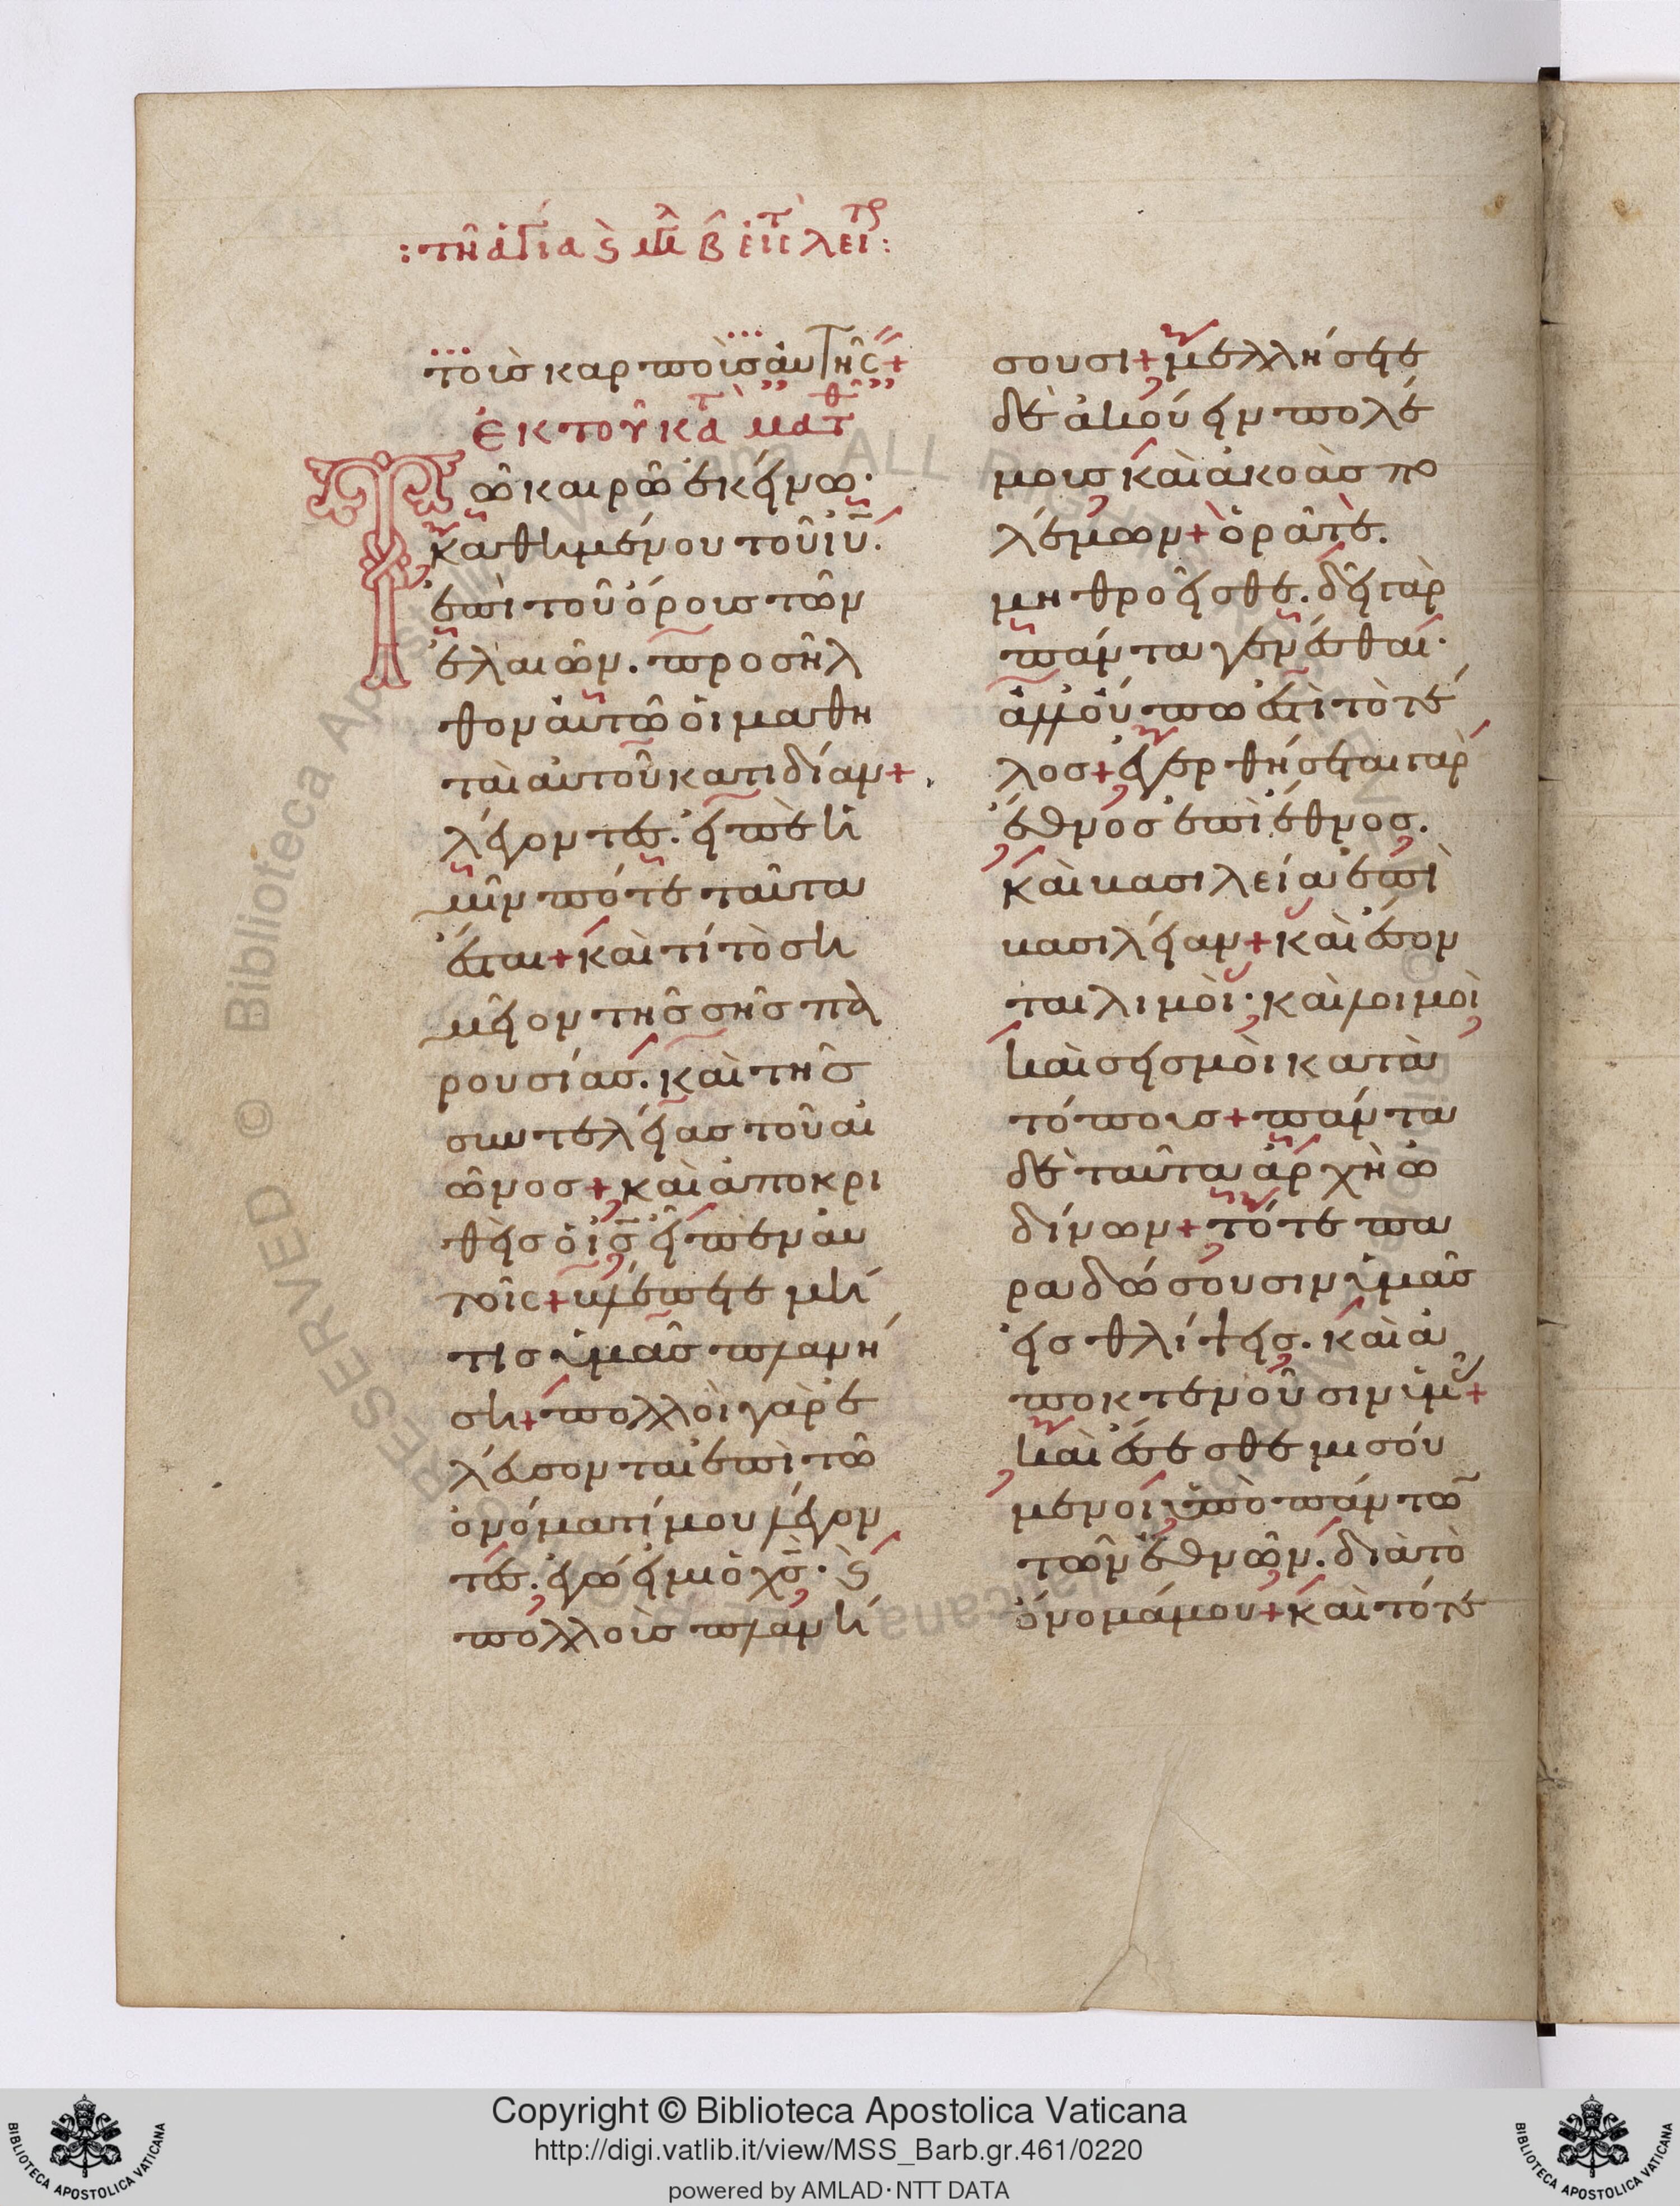 : τῆ ἁγία ϛ μεγαλ β εἰς τ λειτρ :
τοῖς καρποῖς αὐτῆς +
ἐκ τοῦ κατὰ ματθ
Τῶ καιρῶ ἐκείνω·
καθημένου τοῦ ἰυ̅.
ἐπὶ τοῦ ὄρους τῶν
ἐλαιῶν. προσῆλ
θον αὐτῶ οἱ μαθη
ταὶ αὐτοῦ κατιδίαν +
λέγοντες. εἰπὲ ἡ
μῖν πότε ταῦτα
ἔσται + καὶ τί τὸ ση
μεῖον τῆς σῆς πα
ρουσίας. καὶ τῆς
συντελείας τοῦ αἰ
ῶνος + καὶ ἀποκρι
θεὶς ὁ ἰς̅ εἶπεν αὐ
τοῖς + βλέπετε μή
τις ὑμᾶς πλανή
ση + πολλοὶ γὰρ ἐ
λεύσονται ἐπὶ τῶ
ὀνόματί μου λέγον
τες. ἐγώ εἰμι ὁ χς̅· ϛ
πολλοὺς πλανή
σουσι + μελλήσετε
δὲ ἀκούειν πολέ
μους καὶ ἀκοὰς πο
λέμων + ὁρᾶτε.
μὴ θροεῖσθε. δεῖ γὰρ
πάντα γενέσθαι·
ἀλλ' οὔπω ἐστὶ τὸ τέ
λος + ἐγερθήσεται γὰρ
ἔθνος ἐπὶ ἔθνος.
καὶ βασιλεία ἐπὶ
βασιλείαν + καὶ ἔσον
ται λιμοὶ· καὶ λοιμοὶ
καὶ σεισμοὶ κατὰ
τόπους + πάντα
δὲ ταῦτα ἀρχὴ ὠ
δίνων + τότε πα
ραδώσουσιν ὑμᾶς
εἰς θλίψεις. καὶ ἀ
ποκτενοῦσιν ὑμ +
καὶ ἔσεσθε μισού
μενοι ὑπὸ πάντω̅
τῶν ἐθνῶν. διὰ τὸ
ὄνομά μου + καὶ τότε
Copyright © Biblioteca Apostolica Vaticana
http://digi.vatlib.it/view/MSS_Barb.gr.461/0220
powered by AMLAD·NTT DATA
BIBLIOTECA APOSTOLICA VATICANA
BIBLIOTECA APOSTOLICA VATICANA